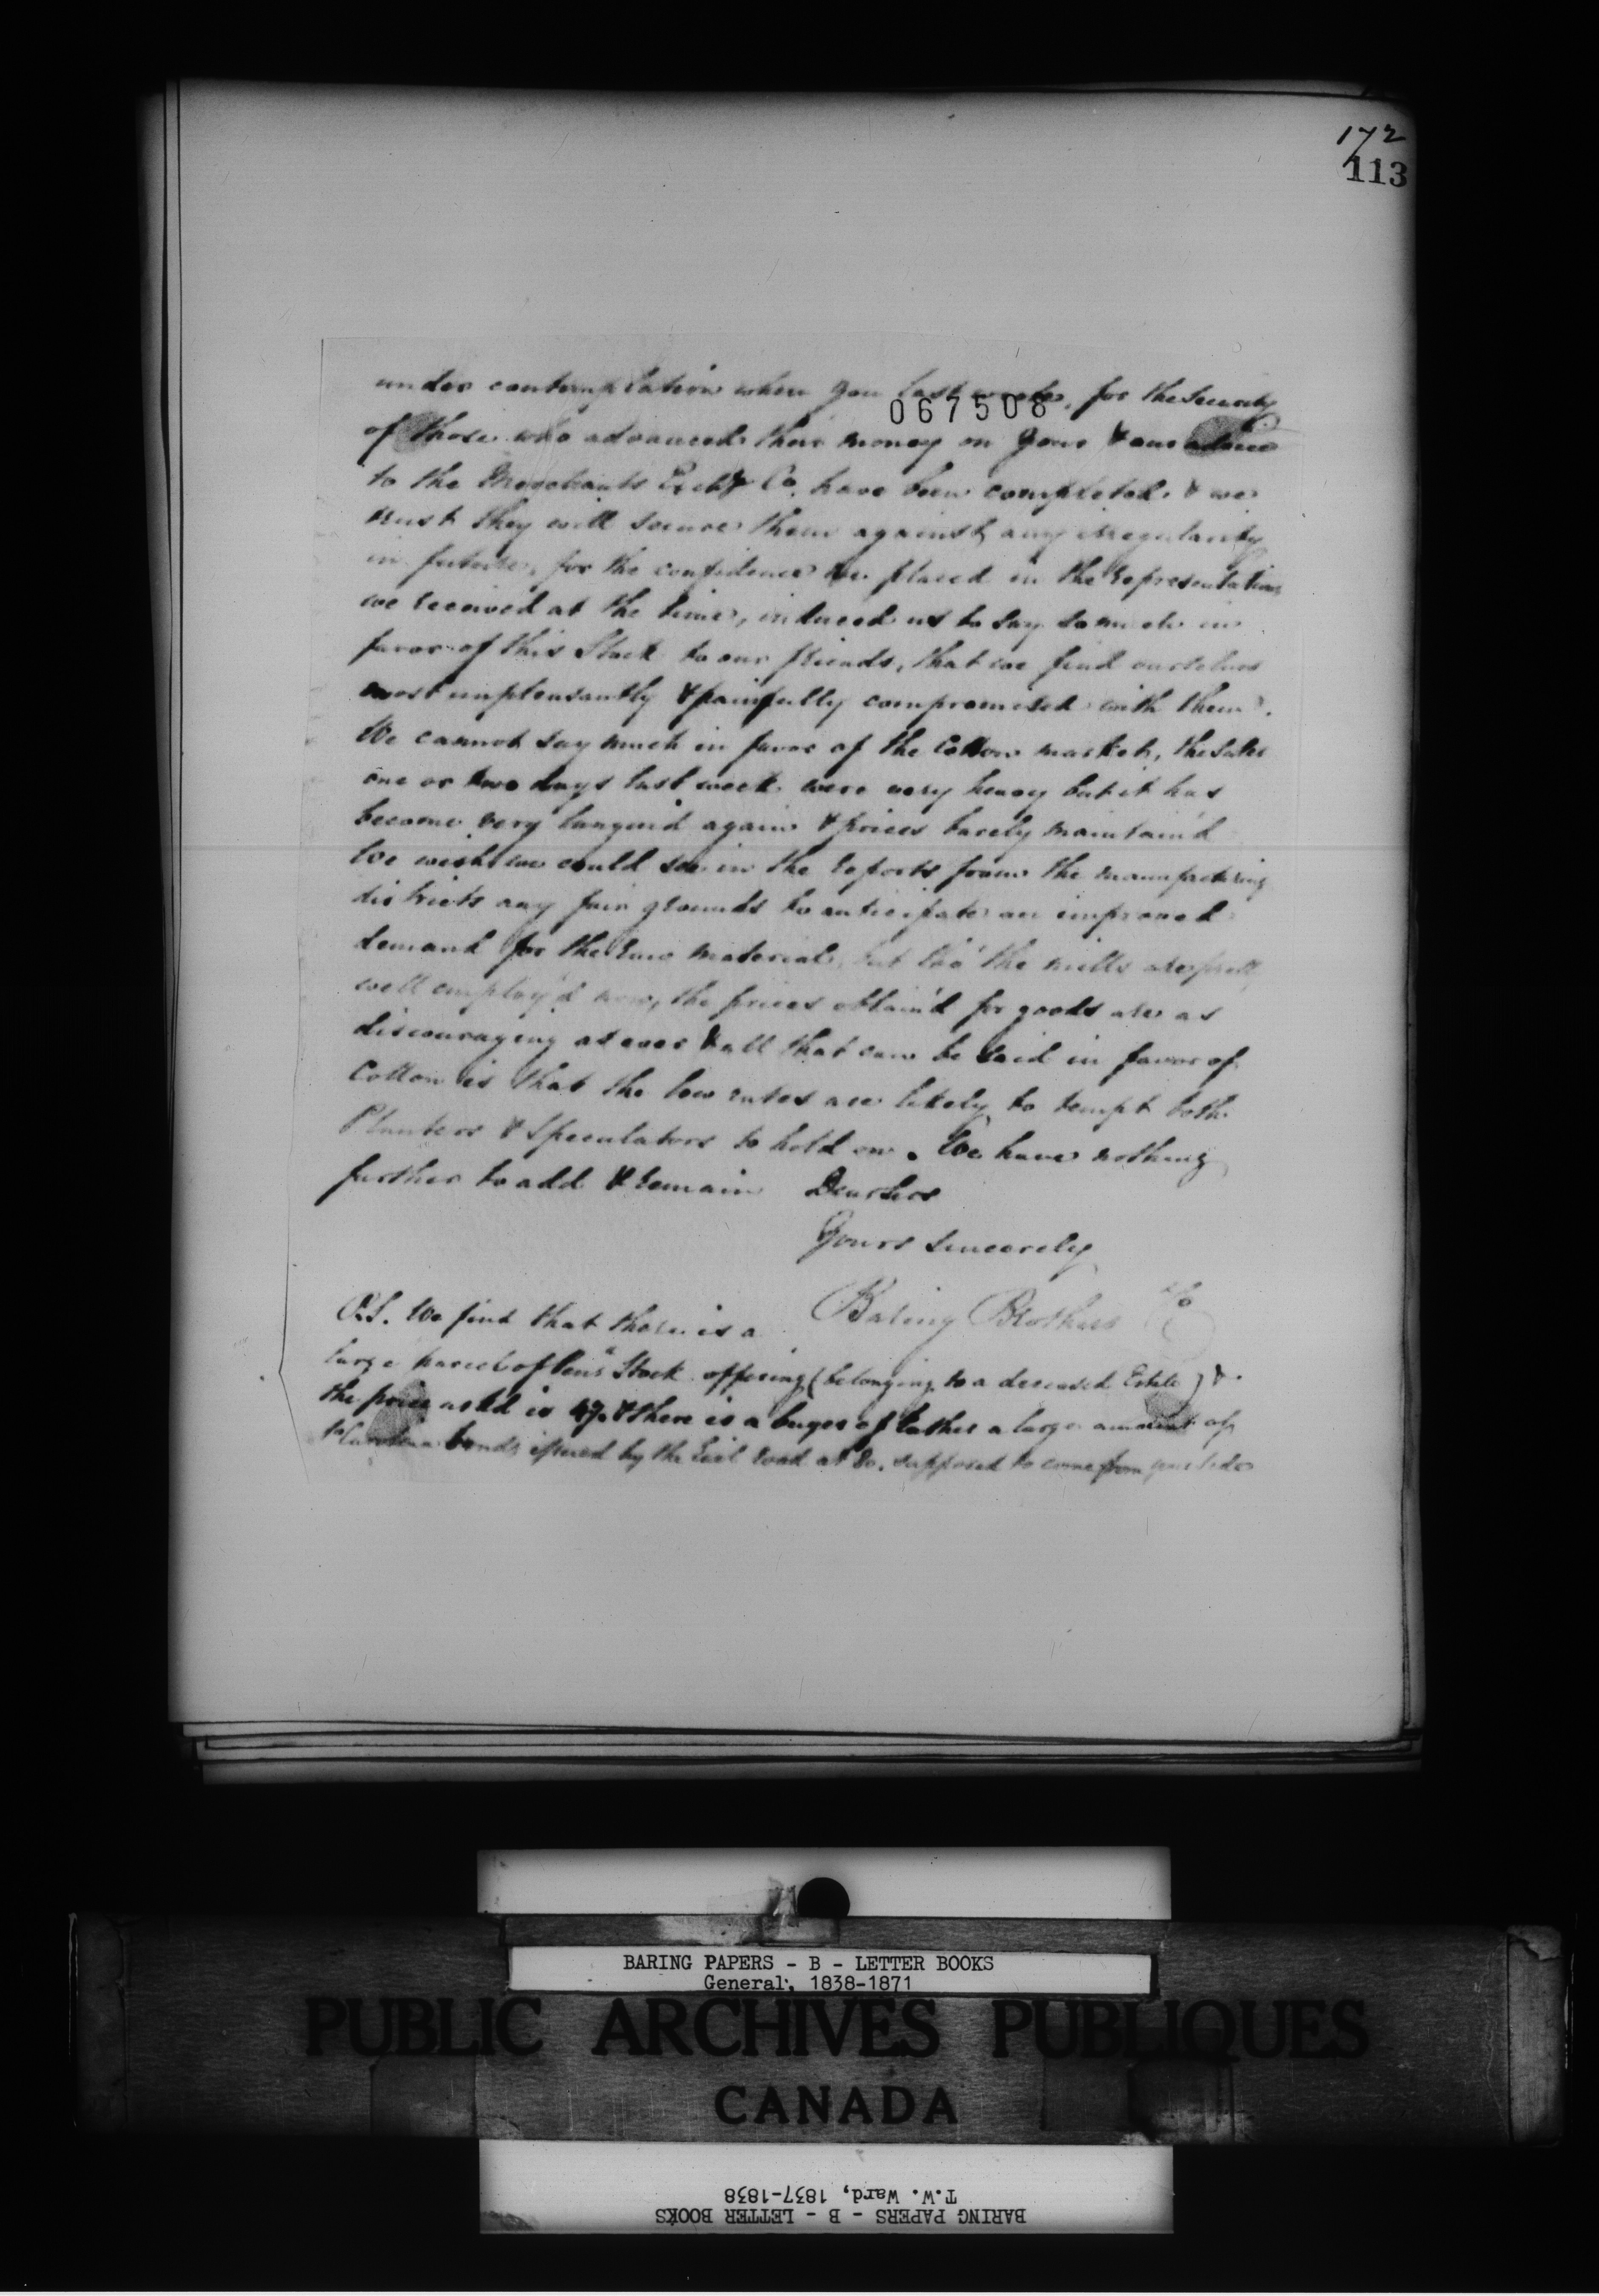 172
113
067508
under contemplation when you last wrote, for the security
of those who advanced their money on your & our advice
to the Merchants Exchge Co. have been completed & we
trust they will secure them against any irregularity
in future, for the confidence we placed in the representations
we received at the time, induced us to say so much in
favor of this Stock to our friends, that we find ourselves
most unpleasantly & painfully compromised with them.
We cannot say much in favor of the Cotton market, the sales
one or two days last week were very heavy but it has
become very languid again & prices barely maintain'd
We wish we could see in the reports from the manufacturing
districts any fair grounds to anticipate an improved
demand for the raw material, but tho' the mills are pretty
well employ'd now, the prices obtain'd for goods are as
discouraging as ever & all that can be said in favor of
Cotton is that the low rates are likely to tempt both
Planters & Speculators to hold on. We have nothing
further to add & remain Dear Sirs
Yours sincerely
Baring Brothers & Co
P.S. We find that there is a
large parcel of Penna Stock offering (belonging to a deceased Estate) &
the price asked is 47. & there is a buyer of rather a large amount of
Carolina bonds issued by the Rail road at 80. supposed to come from your side
BARING PAPERS - B - LETTER BOOKS
General, 1838-1871
PUBLIC ARCHIVES PUBLIQUES
CANADA
BARING PAPERS - B - LETTER BOOKS
T.W. Ward, 1837-1838